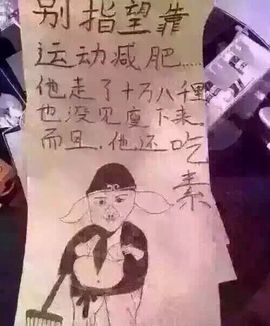 别指望靠
运动减肥......
他走了十万八千里
也没见瘦下来
而且.他还吃素